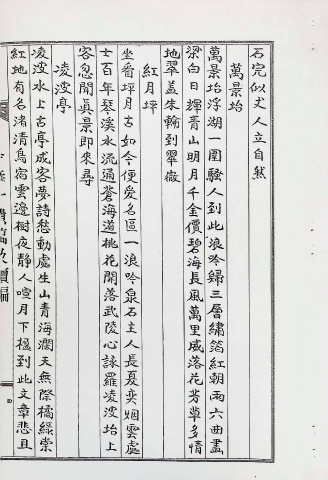 石完似丈人立自然
萬景坮
萬景坮浮湖一圍騷人到此浪吟歸三層繡箔紅朝雨六曲畵
梁白日輝青山明月千金價碧海長風萬里威落花芳草多情
地翠盖朱輪到翠微
紅月坪
坐看坪月古如今便愛名區一浪吟泉石主人長夏奕烟雲處
士百年琴溪水流通蒼海道桃花開落武陵心詠羅凌波坮上
客忽聞眞景即來尋
凌波亭
凌波水上古亭成客夢詩愁動處生山青海濶天無際橘綠棠
紅地有名渚清鳥宿雲邊樹夜靜人喧月下楹到此文章悲且